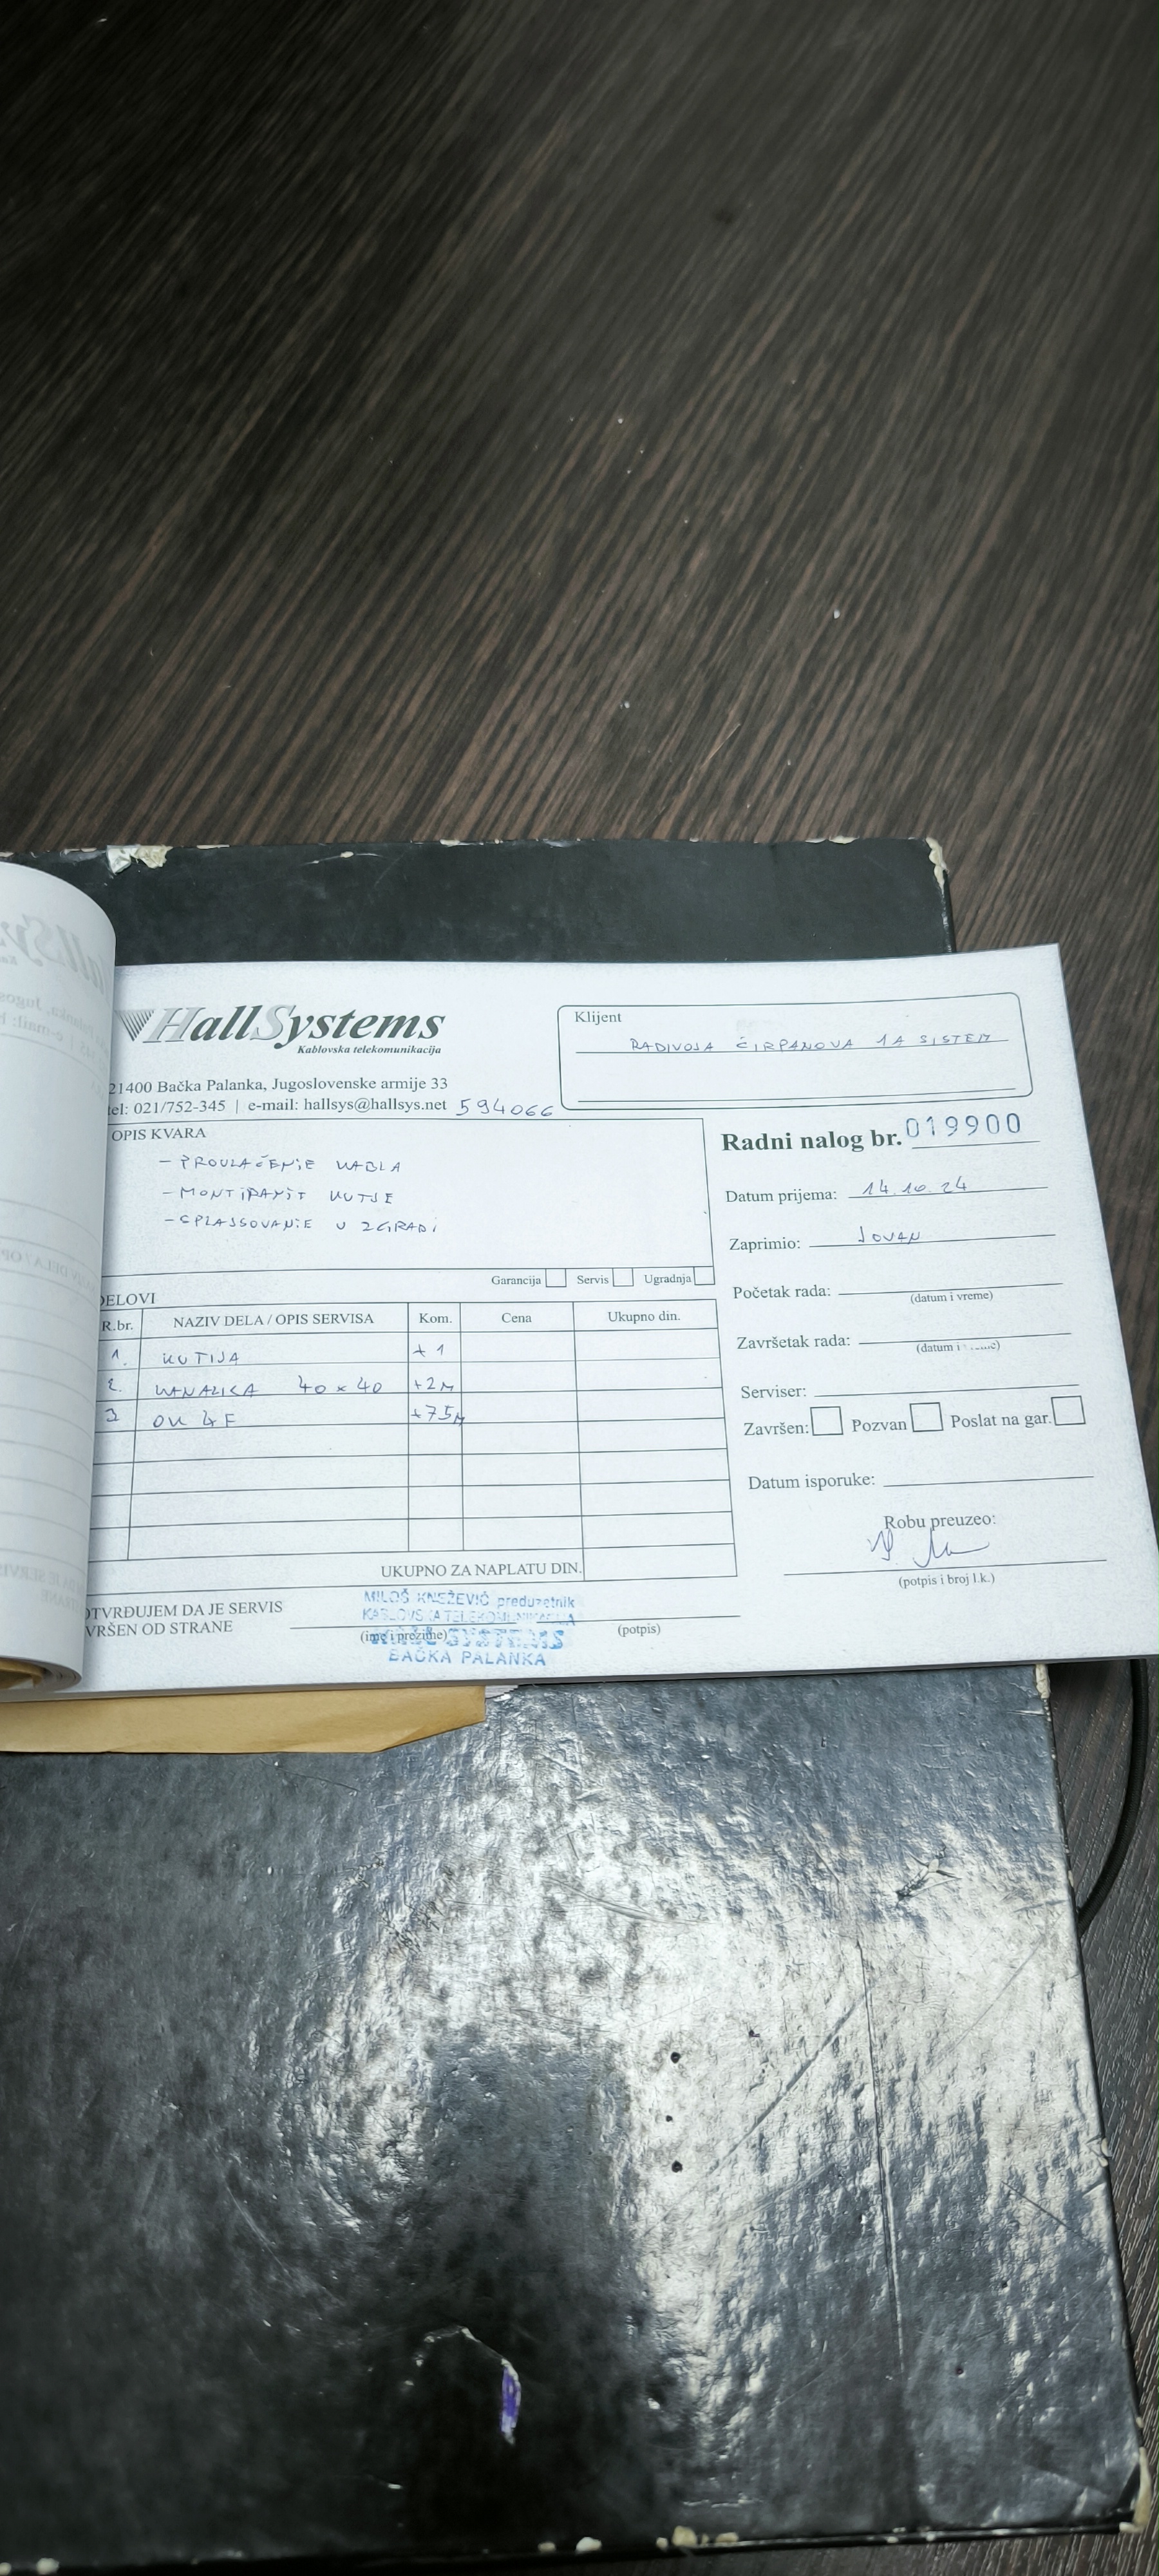 HallSystems
Kablovska telekomunikacija
21400 Bačka Palanka, Jugoslovenske armije 33
tel: 021/752-345 | e-mail: hallsys@hallsys.net 594066
Klijent
RADIVOJA ĆIRPANOVA 1A SISTEM
OPIS KVARA
- PROVLAČENJE KABLA
- MONTIRANJE KUTIJE
- SPLASSOVANJE U ZGRADI
Garancija Servis Ugradnja
DELOVI
R.br. NAZIV DELA / OPIS SERVISA Kom. Cena Ukupno din.
1. KUTIJA +1
2. KANALICA 40 x 40 +2M
3 OK 4F +75M
UKUPNO ZA NAPLATU DIN.
Radni nalog br. 019900
Datum prijema: 14.10.24
Zaprimio: JOVAN
Početak rada:
(datum i vreme)
Završetak rada:
(datum i
Serviser:
Završen: Pozvan Poslat na gar.
Datum isporuke:
Robu preuzeo:
(potpis i broj l.k.)
OTVRĐUJEM DA JE SERVIS
VRŠEN OD STRANE
(ime i prezime)
(potpis)
MILOŠ KNEŽEVIĆ preduzetnik
KABLOVSKA TELEKOMUNIKACIJA
HALL SYSTEMS
BAČKA PALANKA